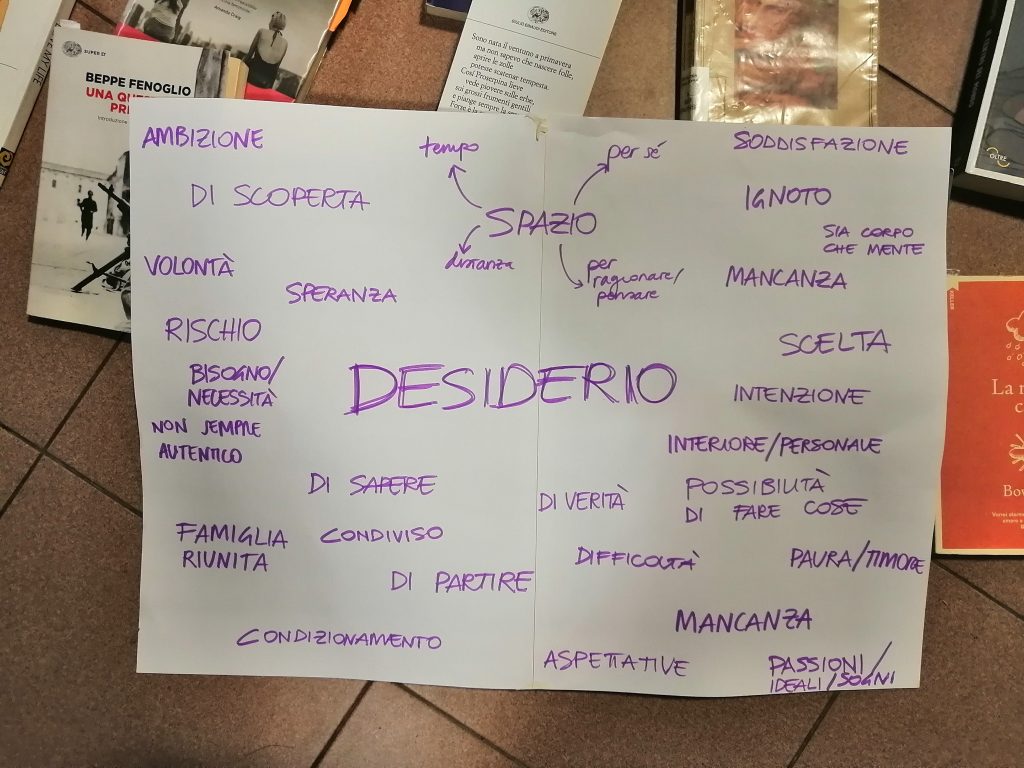 Amanda Craig
SUPER ET
BEPPE FENOGLIO
Introduzione
GIULIO EINAUDI EDITORE
Sono nata il ventuno a primavera
ma non sapevo che nascere folle,
aprire le zolle
potesse scatenar tempesta.
Così Proserpina lieve
vede piovere sulle erbe,
sui grossi frumenti gentili
e piange sempre la sera.
OLTRE
AMBIZIONE
tempo
per sé
SODDISFAZIONE
DI SCOPERTA
SPAZIO
IGNOTO
SIA CORPO
CHE MENTE
VOLONTÀ
distanza
per
ragionare/
pensare
MANCANZA
SPERANZA
RISCHIO
SCELTA
BISOGNO/
NECESSITÀ
DESIDERIO
INTENZIONE
NON SEMPRE
AUTENTICO
INTERIORE/PERSONALE
DI SAPERE
DI VERITÀ
POSSIBILITÀ
DI FARE COSE
FAMIGLIA
RIUNITA
CONDIVISO
DIFFICOLTÀ
PAURA/TIMORE
DI PARTIRE
MANCANZA
CONDIZIONAMENTO
ASPETTATIVE
PASSIONI/
IDEALI/SOGNI
La
Bow